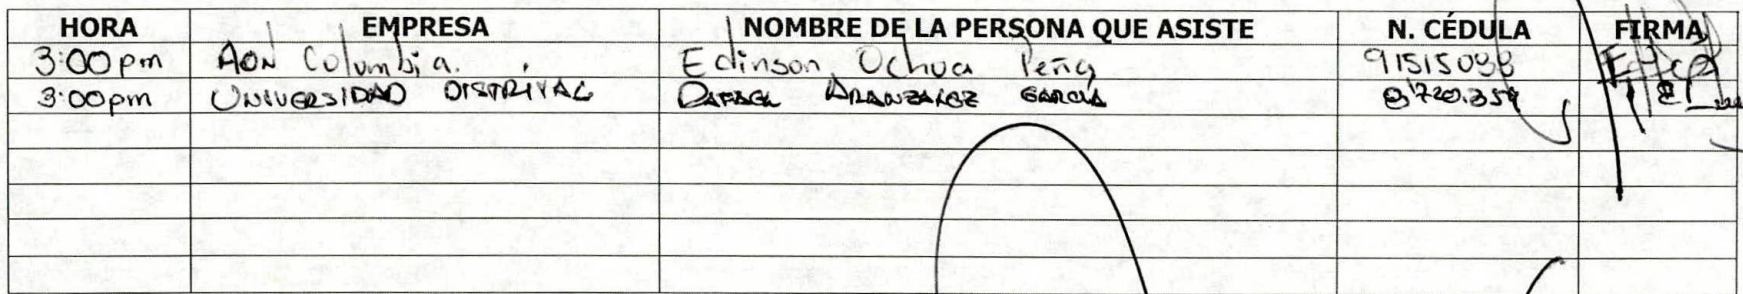 HORA EMPRESA NOMBRE DE LA PERSONA QUE ASISTE N. CÉDULA FIRMA
3:00pm Aon Colombia. Edinson Ochoa Peña
3:00pm UNIVERSIDAD DISTRITAL RAFAEL ARANZALEZ GARCIA 8'720.354